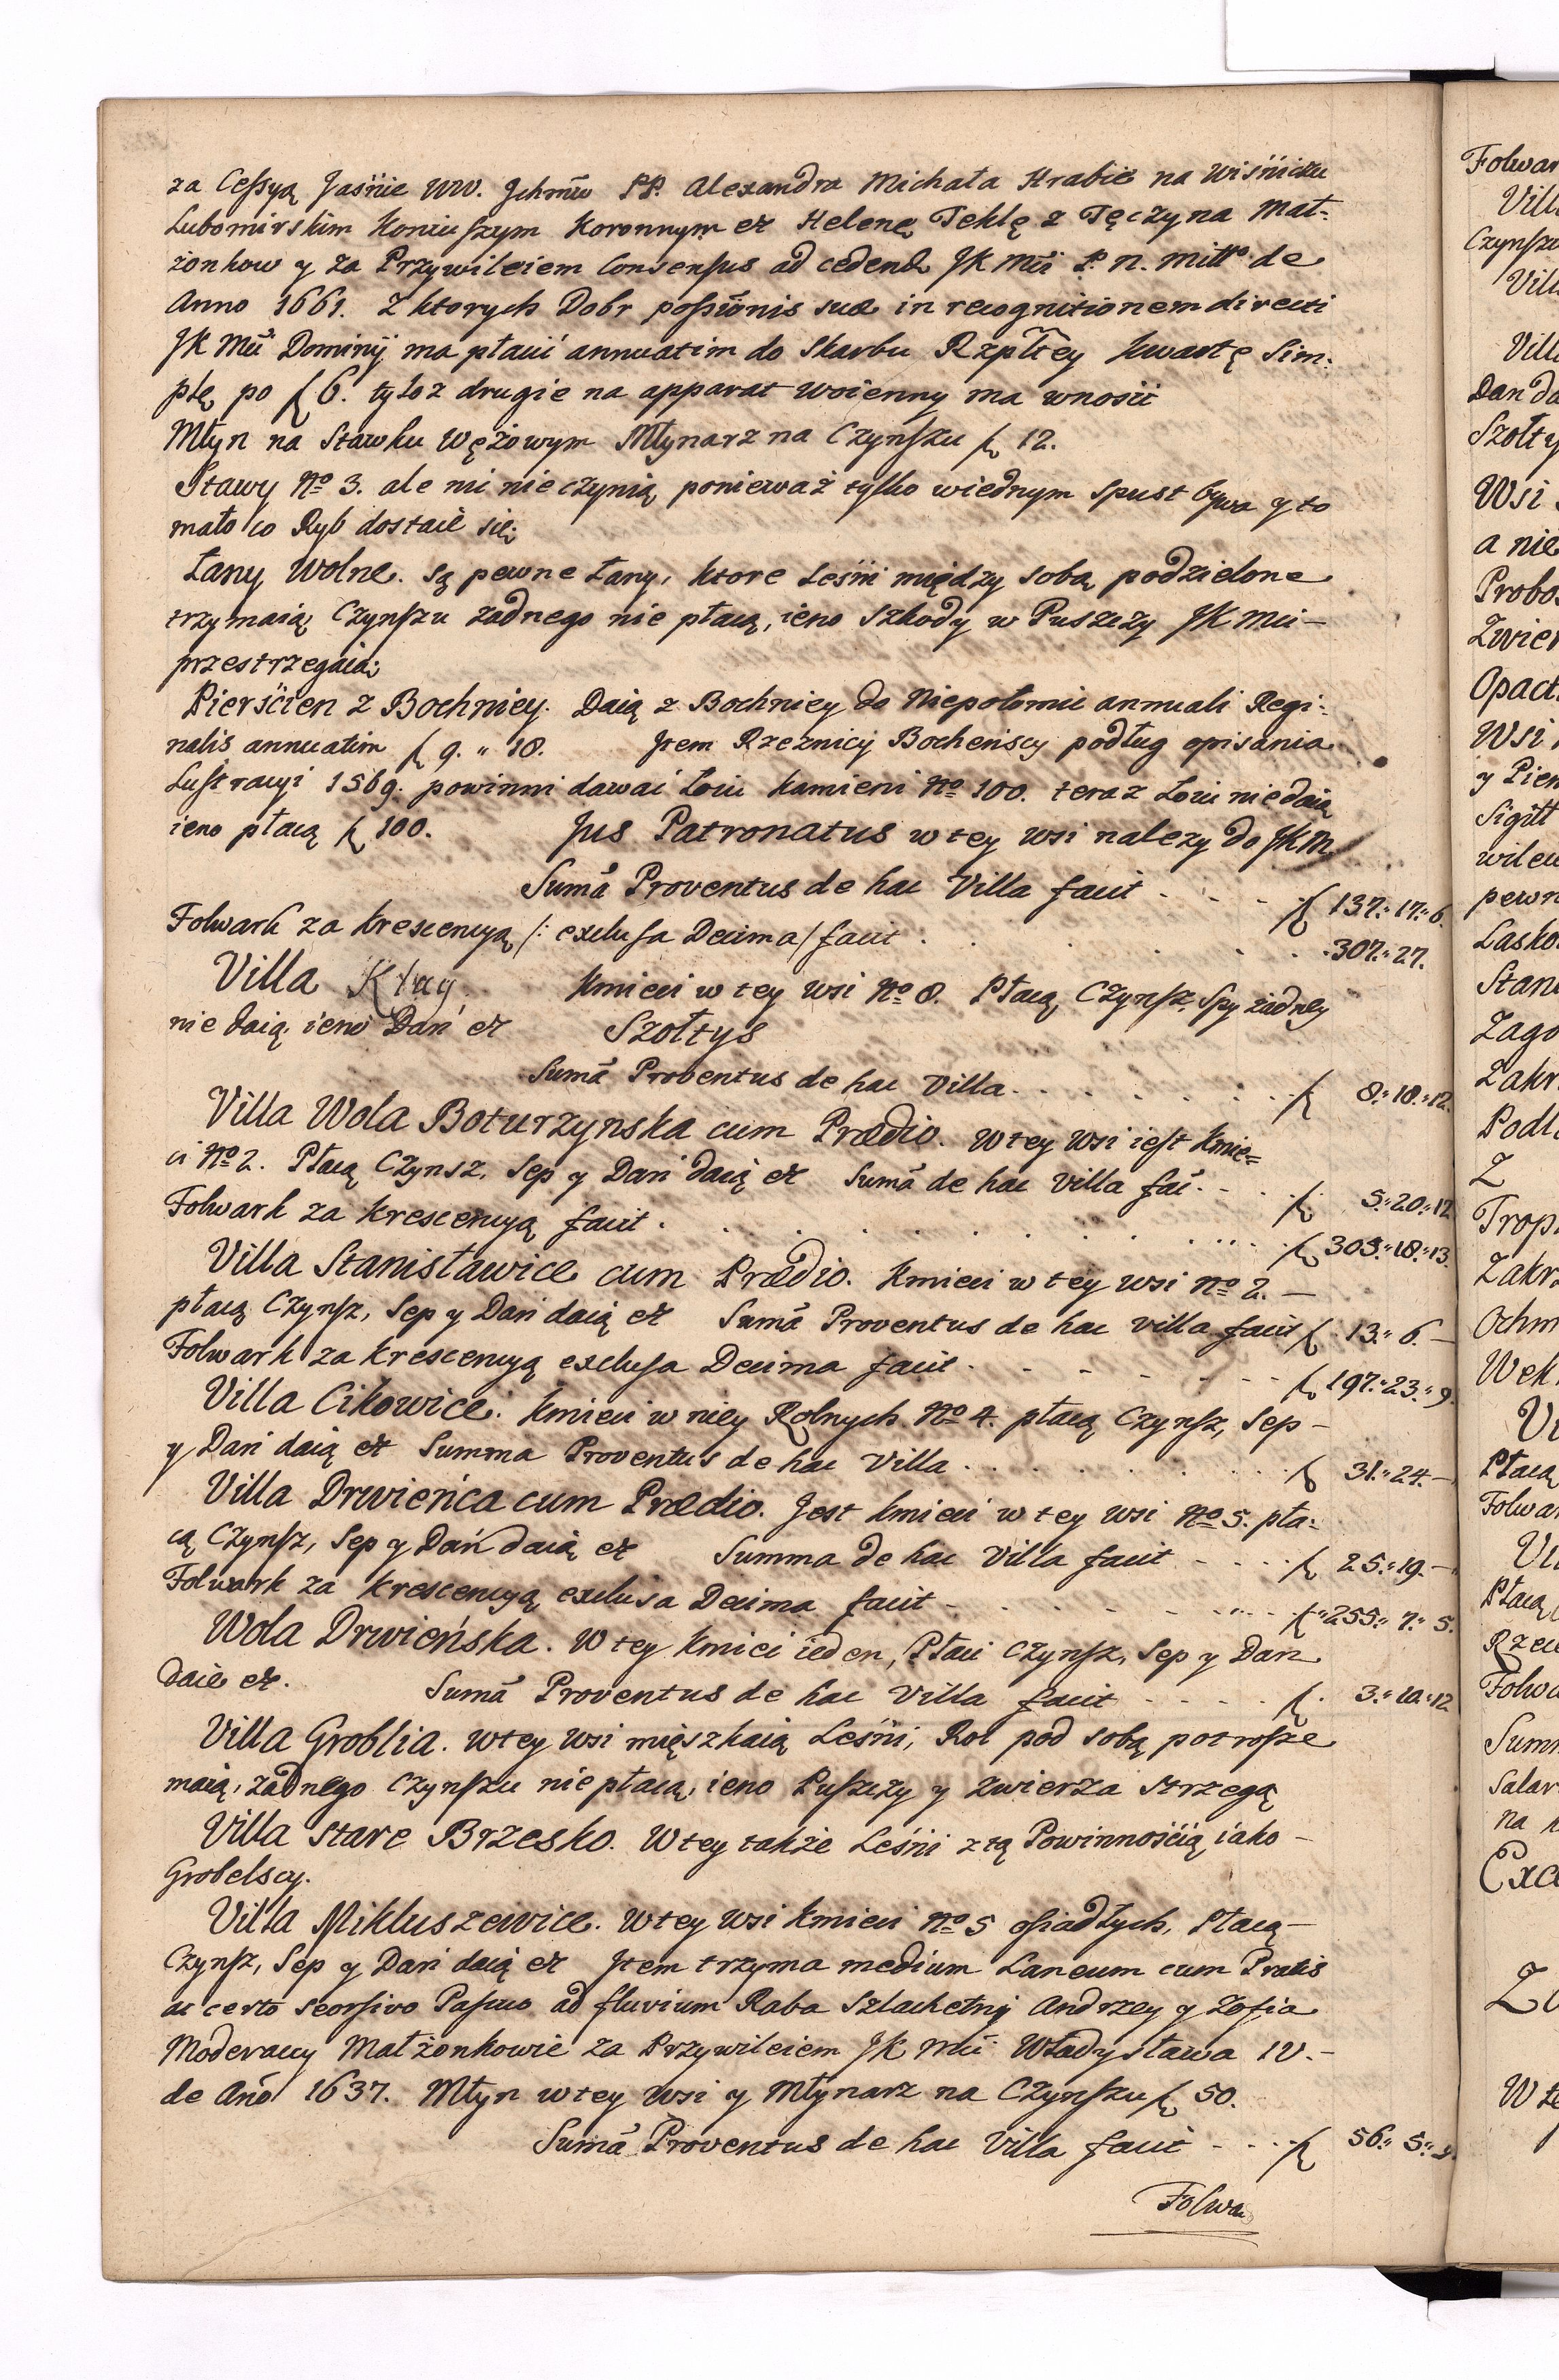 za Cessyą Jaśnie WW. Jchmśw PP. Alexandra Michała Hrabie na Wiśniczu
Lubomirskim Koniuszym Koronnym et Helenę Teklę z Tęczyna Mał:
żonkow y za Przywileiem Consensus ad cedend JK Mści P. n. mitto de
Anno 1661. Z ktorych Dobr possionis suae in recognitionem directi
JK Mci Dominij ma płacić annuatim do Skarbu Rzpltey kwartę Sim:
plę po f 6. tyloż drugie na apparat woienny ma wnosić
Młyn na Stawku Wężowym Młynarz na Czynszu f 12.
Stawy No 3. ale nic nie czynią ponieważ tylko wiednym Spust bywa y to
mało co Ryb dostaie się;
Łany Wolne. są pewne Łany, ktore Leśni między sobą podzielone
trzymaią Czynszu żadnego nie płacą, ieno Szkody w Puszczy JK Mci
przestrzegaią;
Pierścien z Bochniey. Daią z Bochniey do Niepołomic annuali Regi:
nalis annuatim f 9. " 18. Jtem Rzeznicy Bocheńscy podług opisania
Lustracyi 1569. powinni dawać Łoiu kamieni No 100. teraz Łoiu nie daią
ieno płacą f 100. Jus Patronatus w tey wsi nalezy do JKM
Sumã Proventus de hac Villa facit - - - f 137." 17." 6.
Folwark za krescencyą /: exclusa Decima / facit . . . . 307." 27.
Villa Kłay Kmieci w tey wsi No 8. Płacą Czynsz, Spy żadney
nie daią ieno Dań et Szołtys
Sumã Proventus de hac Villa . . . . . f 8." 18." 12.
Villa Wola Boturzynska cum Prædio. W tey wsi iest Kmie=
ci No 2. Płacą Czynsz, Sep y Dań daią et Sumã de hac Villa fac. - - f 5." 20." 12
Folwark za krescencyą facit . . . . . . f 303." 18." 13.
Villa Stanisławice cum Prædio. Kmieci w tey wsi No 2. —
płacą Czynsz, Sep y Dań daią et Sumã Proventus de hac villa facit f 13." 6. —
Folwark za krescencyą exclusa Decima facit . - - - - f 197." 23." 9.
Villa Cikowice. Kmieci w niey Rolnych No 4. płacą Czynsz, Sep —
y Dań daią et Summa Proventus de hac Villa . . . . . f 31." 24. —
Villa Drwieńca cum Prædio. Jest kmieci w tey wsi No 5. pła:
cą Czynsz, Sep y Dań daią et Summa de hac Villa facit - - - f 25." 19. —
Folwark za krescencyą exclusa Decima facit - . - . - f 255." 7." 5.
Wola Drwieńska. W tey kmieci ieden, Płaci Czynsz, Sep y Dan
daie et. Sumã Proventus de hac Villa facit - - - - f . 3." 10." 12
Villa Groblia. w tey wsi mięszkaią Leśni; Rol pod sobą potrosze
maią, żadnego Czynszu niepłacą, ieno Puszczy y zwierza strzegą
Villa Stare Brzesko. W tey także Leśni z tą Powinnością iako —
Grobelscy.
Villa Mikluszewice. W tey wsi kmieci No 5 osiadłych, Płacą —
Czynsz, Sep y Dań daią et Jtem trzyma medium Laneum cum Pratis
ac certo seorsivo Pascuo ad fluvium Raba Szlachetny Andrzey y Zofia
Moderaccy Małżonkowie za Przywileiem JK Mci Władysława IV. —
de Anõ 1637. Młyn w tey wsi y Młynarz na Czynszu f 50.
Sumã Proventus de hac Villa facit - - - f 56." 5."
Folwa